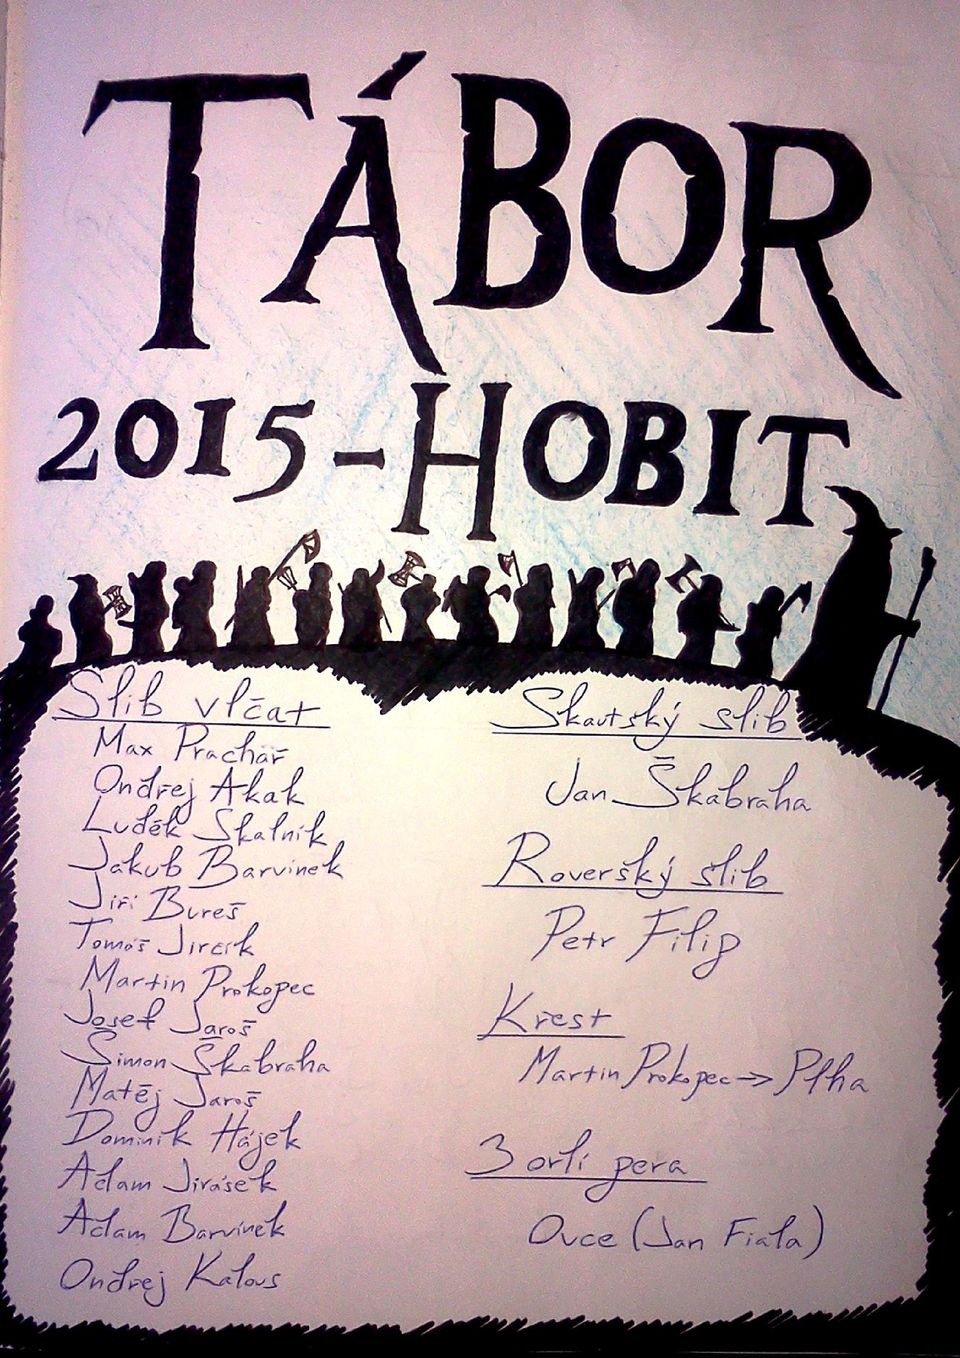 TÁBOR
2015-HOBIT
Slib vlčat
Max Prachář
Ondřej Akak
Luděk Skalník
Jakub Barvínek
Jiří Bureš
Tomáš Jirčík
Martin Prokopec
Josef Jaroš
Šimon Škabraha
Matěj Jaroš
Dominik Hájek
Adam Jirásek
Adam Barvínek
Ondřej Kalous
Skautský slib
Jan Škabraha
Roverský slib
Petr Filip
Křest
Martin Prokopec → Plha
3 orlí pera
Ovce (Jan Fiala)